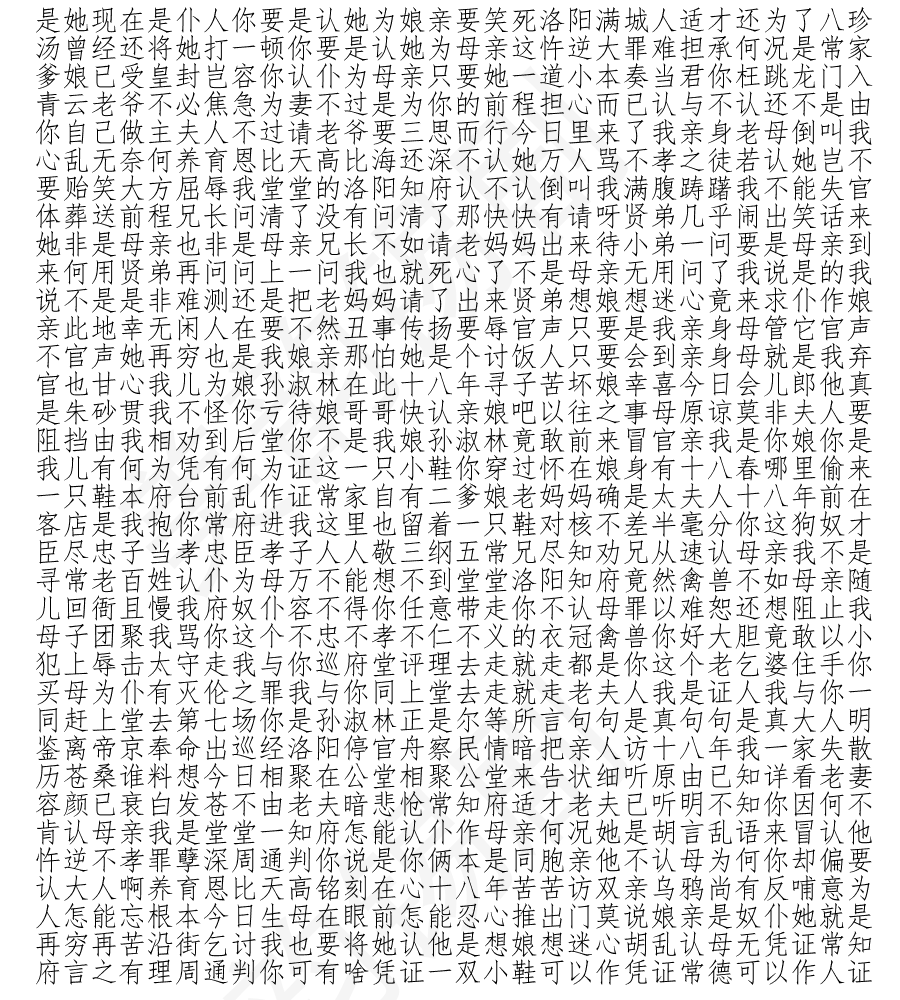 是她现在是仆人你要是认她为娘亲要笑死洛阳满城人适才还为了八珍
汤曾经还将她打一顿你要是认她为母亲这忤逆大罪难担承何况是常家
爹娘已受皇封岂容你认仆为母亲只要她一道小本奏当君你枉跳龙门入
青云老爷不必焦急为妻不过是为你的前程担心而已认与不认还不是由
你自己做主夫人不过请老爷要三思而行今日里来了我亲身老母倒叫我
心乱无奈何养育恩比天高比海还深不认她万人骂不孝之徒若认她岂不
要贻笑大方屈辱我堂堂的洛阳知府认不认倒叫我满腹踌躇我不能失官
体葬送前程兄长问清了没有问清了那快快有请呀贤弟几乎闹出笑话来
她非是母亲也非是母亲兄长不如请老妈妈出来待小弟一问要是母亲到
来何用贤弟再问问上一问我也就死心了不是母亲无用问了我说是的我
说不是是非难测还是把老妈妈请了出来贤弟想娘想迷心竟来求仆作娘
亲此地幸无闲人在要不然丑事传扬要辱官声只要是我亲身母管它官声
不官声她再穷也是我娘亲那怕她是个讨饭人只要会到亲身母就是我弃
官也甘心我儿为娘孙淑林在此十八年寻子苦坏娘幸喜今日会儿郎他真
是朱砂贯我不怪你亏待娘哥哥快认亲娘吧以往之事母原谅莫非夫人要
阻挡由我相劝到后堂你不是我娘孙淑林竟敢前来冒官亲我是你娘你是
我儿有何为凭有何为证这一只小鞋你穿过怀在娘身有十八春哪里偷来
一只鞋本府台前乱作证常家自有二爹娘老妈妈确是太夫人十八年前在
客店是我抱你常府进我这里也留着一只鞋对核不差半毫分你这狗奴才
臣尽忠子当孝忠臣孝子人人敬三纲五常兄尽知劝兄从速认母亲我不是
寻常老百姓认仆为母万不能想不到堂堂洛阳知府竟然禽兽不如母亲随
儿回衙且慢我府奴仆容不得你任意带走你不认母罪以难恕还想阻止我
母子团聚我骂你这个不忠不孝不仁不义的衣冠禽兽你好大胆竟敢以小
犯上辱击太守走我与你巡府堂评理去走就走都是你这个老乞婆住手你
买母为仆有灭伦之罪我与你同上堂去走就走老夫人我是证人我与你一
同赶上堂去第七场你是孙淑林正是尔等所言句句是真句句是真大人明
鉴离帝京奉命出巡经洛阳停官舟察民情暗把亲人访十八年我一家失散
历苍桑谁料想今日相聚在公堂相聚公堂来告状细听原由已知详看老妻
容颜已衰白发苍不由老夫暗悲怆常知府适才老夫已听明不知你因何不
肯认母亲我是堂堂一知府怎能认仆作母亲何况她是胡言乱语来冒认他
忤逆不孝罪孽深周通判你说是你俩本是同胞亲他不认母为何你却偏要
认大人啊养育恩比天高铭刻在心十八年苦苦访双亲乌鸦尚有反哺意为
人怎能忘根本今日生母在眼前怎能忍心推出门莫说娘亲是奴仆她就是
再穷再苦沿街乞讨我也要将她认他是想娘想迷心胡乱认母无凭证常知
府言之有理周通判你可有啥凭证一双小鞋可以作凭证常德可以作人证